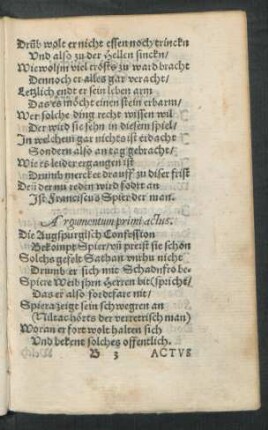 Drüb wolt er nicht essen noch trinckn
Vnd also zu der Hellen sinckn/
Wiewol jm viel trösts zu ward bracht
Dennoch er alles gar veracht/
Letzlich endt er sein leben arm
Das es möcht einen stein erbarm/
Wer solche ding recht wissen wil
Der wird sie sehn in diesem spiel/
In welchem gar nichts ist erdacht
Sondern also an tag gebracht/
Wie es leider ergangen ist
Drumb mercket drauff zu diser frist
Deñ der nu reden wird sodit an
Ist Franciscus Spier der man.
Argumentum primi actus.
Die Augspurgisch Confession
Bekompt Spier/ vñ preist sie schon
Solchs gefelt Sathan
Drumb er sich mit Schadnfro be-
Spiers Weib jhrn Herren bit (spricht/
Das er also fordefare nit/
Spiera zeigt sein schwegren an
(Militar hörts der verretrisch man)
Woran er fort wolt halten sich
Vnd bekent solches offentlich.
B 3 ACTVS